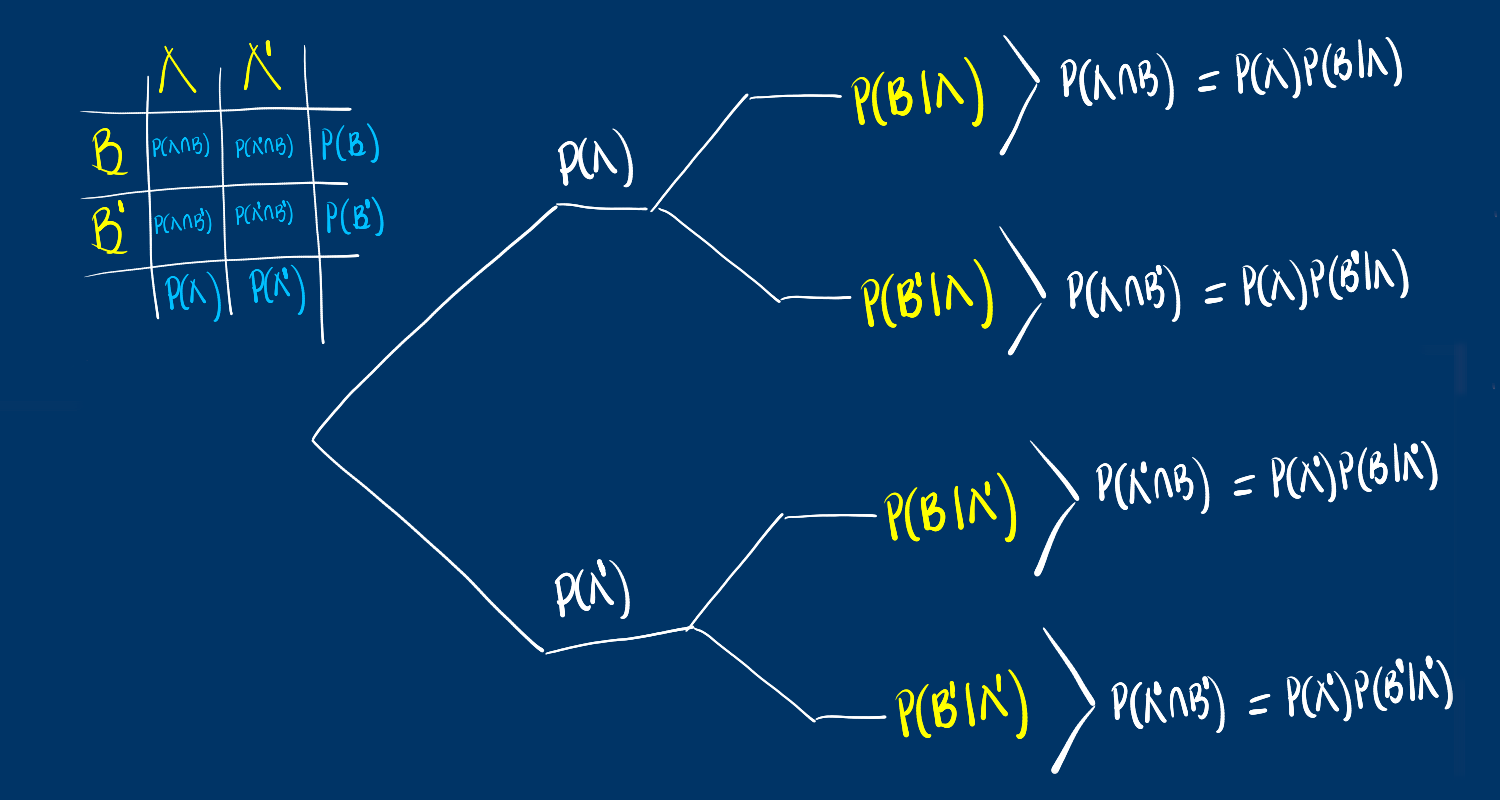 A A'
B P(A∩B) P(A'∩B) P(B)
B' P(A∩B') P(A'∩B') P(B')
P(A) P(A')
P(A)
P(B|A) P(A∩B) = P(A)P(B|A)
P(B'|A) P(A∩B') = P(A)P(B'|A)
P(A')
P(B|A') P(A'∩B) = P(A')P(B|A')
P(B'|A') P(A'∩B') = P(A')P(B'|A')